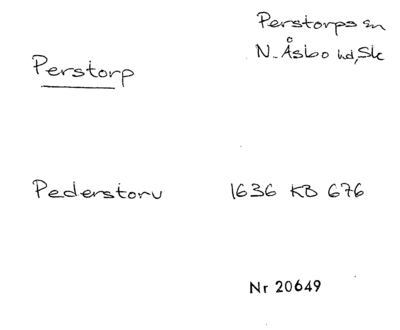 Perstorps sn
N. Åsbo hd, Sk
Perstorp
Pederstoru 1636 KB 676
Nr 20649